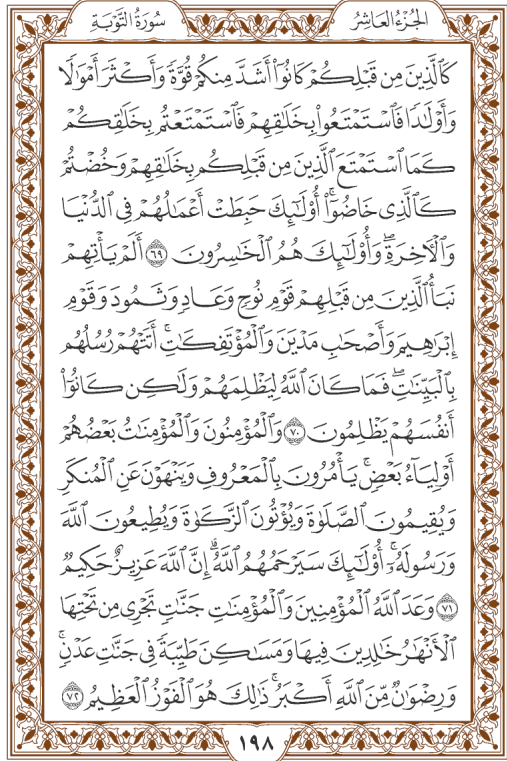 الجُزْءُ العَاشِرُ
سُورَةُ التَّوْبَةِ
كَالَّذِينَ مِن قَبْلِكُمْ كَانُوٓا۟ أَشَدَّ مِنكُمْ قُوَّةً وَأَكْثَرَ أَمْوَٰلًا
وَأَوْلَٰدًا فَٱسْتَمْتَعُوا۟ بِخَلَٰقِهِمْ فَٱسْتَمْتَعْتُم بِخَلَٰقِكُمْ
كَمَا ٱسْتَمْتَعَ ٱلَّذِينَ مِن قَبْلِكُم بِخَلَٰقِهِمْ وَخُضْتُمْ
كَٱلَّذِى خَاضُوٓا۟ ۚ أُو۟لَٰٓئِكَ حَبِطَتْ أَعْمَٰلُهُمْ فِى ٱلدُّنْيَا
وَٱلْءَاخِرَةِ ۖ وَأُو۟لَٰٓئِكَ هُمُ ٱلْخَٰسِرُونَ ٦٩ أَلَمْ يَأْتِهِمْ
نَبَأُ ٱلَّذِينَ مِن قَبْلِهِمْ قَوْمِ نُوحٍ وَعَادٍ وَثَمُودَ وَقَوْمِ
إِبْرَٰهِيمَ وَأَصْحَٰبِ مَدْيَنَ وَٱلْمُؤْتَفِكَٰتِ ۚ أَتَتْهُمْ رُسُلُهُم
بِٱلْبَيِّنَٰتِ ۖ فَمَا كَانَ ٱللَّهُ لِيَظْلِمَهُمْ وَلَٰكِن كَانُوٓا۟
أَنفُسَهُمْ يَظْلِمُونَ ٧٠ وَٱلْمُؤْمِنُونَ وَٱلْمُؤْمِنَٰتُ بَعْضُهُمْ
أَوْلِيَآءُ بَعْضٍ ۚ يَأْمُرُونَ بِٱلْمَعْرُوفِ وَيَنْهَوْنَ عَنِ ٱلْمُنكَرِ
وَيُقِيمُونَ ٱلصَّلَوٰةَ وَيُؤْتُونَ ٱلزَّكَوٰةَ وَيُطِيعُونَ ٱللَّهَ
وَرَسُولَهُۥٓ ۚ أُو۟لَٰٓئِكَ سَيَرْحَمُهُمُ ٱللَّهُ ۗ إِنَّ ٱللَّهَ عَزِيزٌ حَكِيمٌ
٧١ وَعَدَ ٱللَّهُ ٱلْمُؤْمِنِينَ وَٱلْمُؤْمِنَٰتِ جَنَّٰتٍ تَجْرِى مِن تَحْتِهَا
ٱلْأَنْهَٰرُ خَٰلِدِينَ فِيهَا وَمَسَٰكِنَ طَيِّبَةً فِى جَنَّٰتِ عَدْنٍ ۚ
وَرِضْوَٰنٌ مِّنَ ٱللَّهِ أَكْبَرُ ۚ ذَٰلِكَ هُوَ ٱلْفَوْزُ ٱلْعَظِيمُ ٧٢
١٩٨